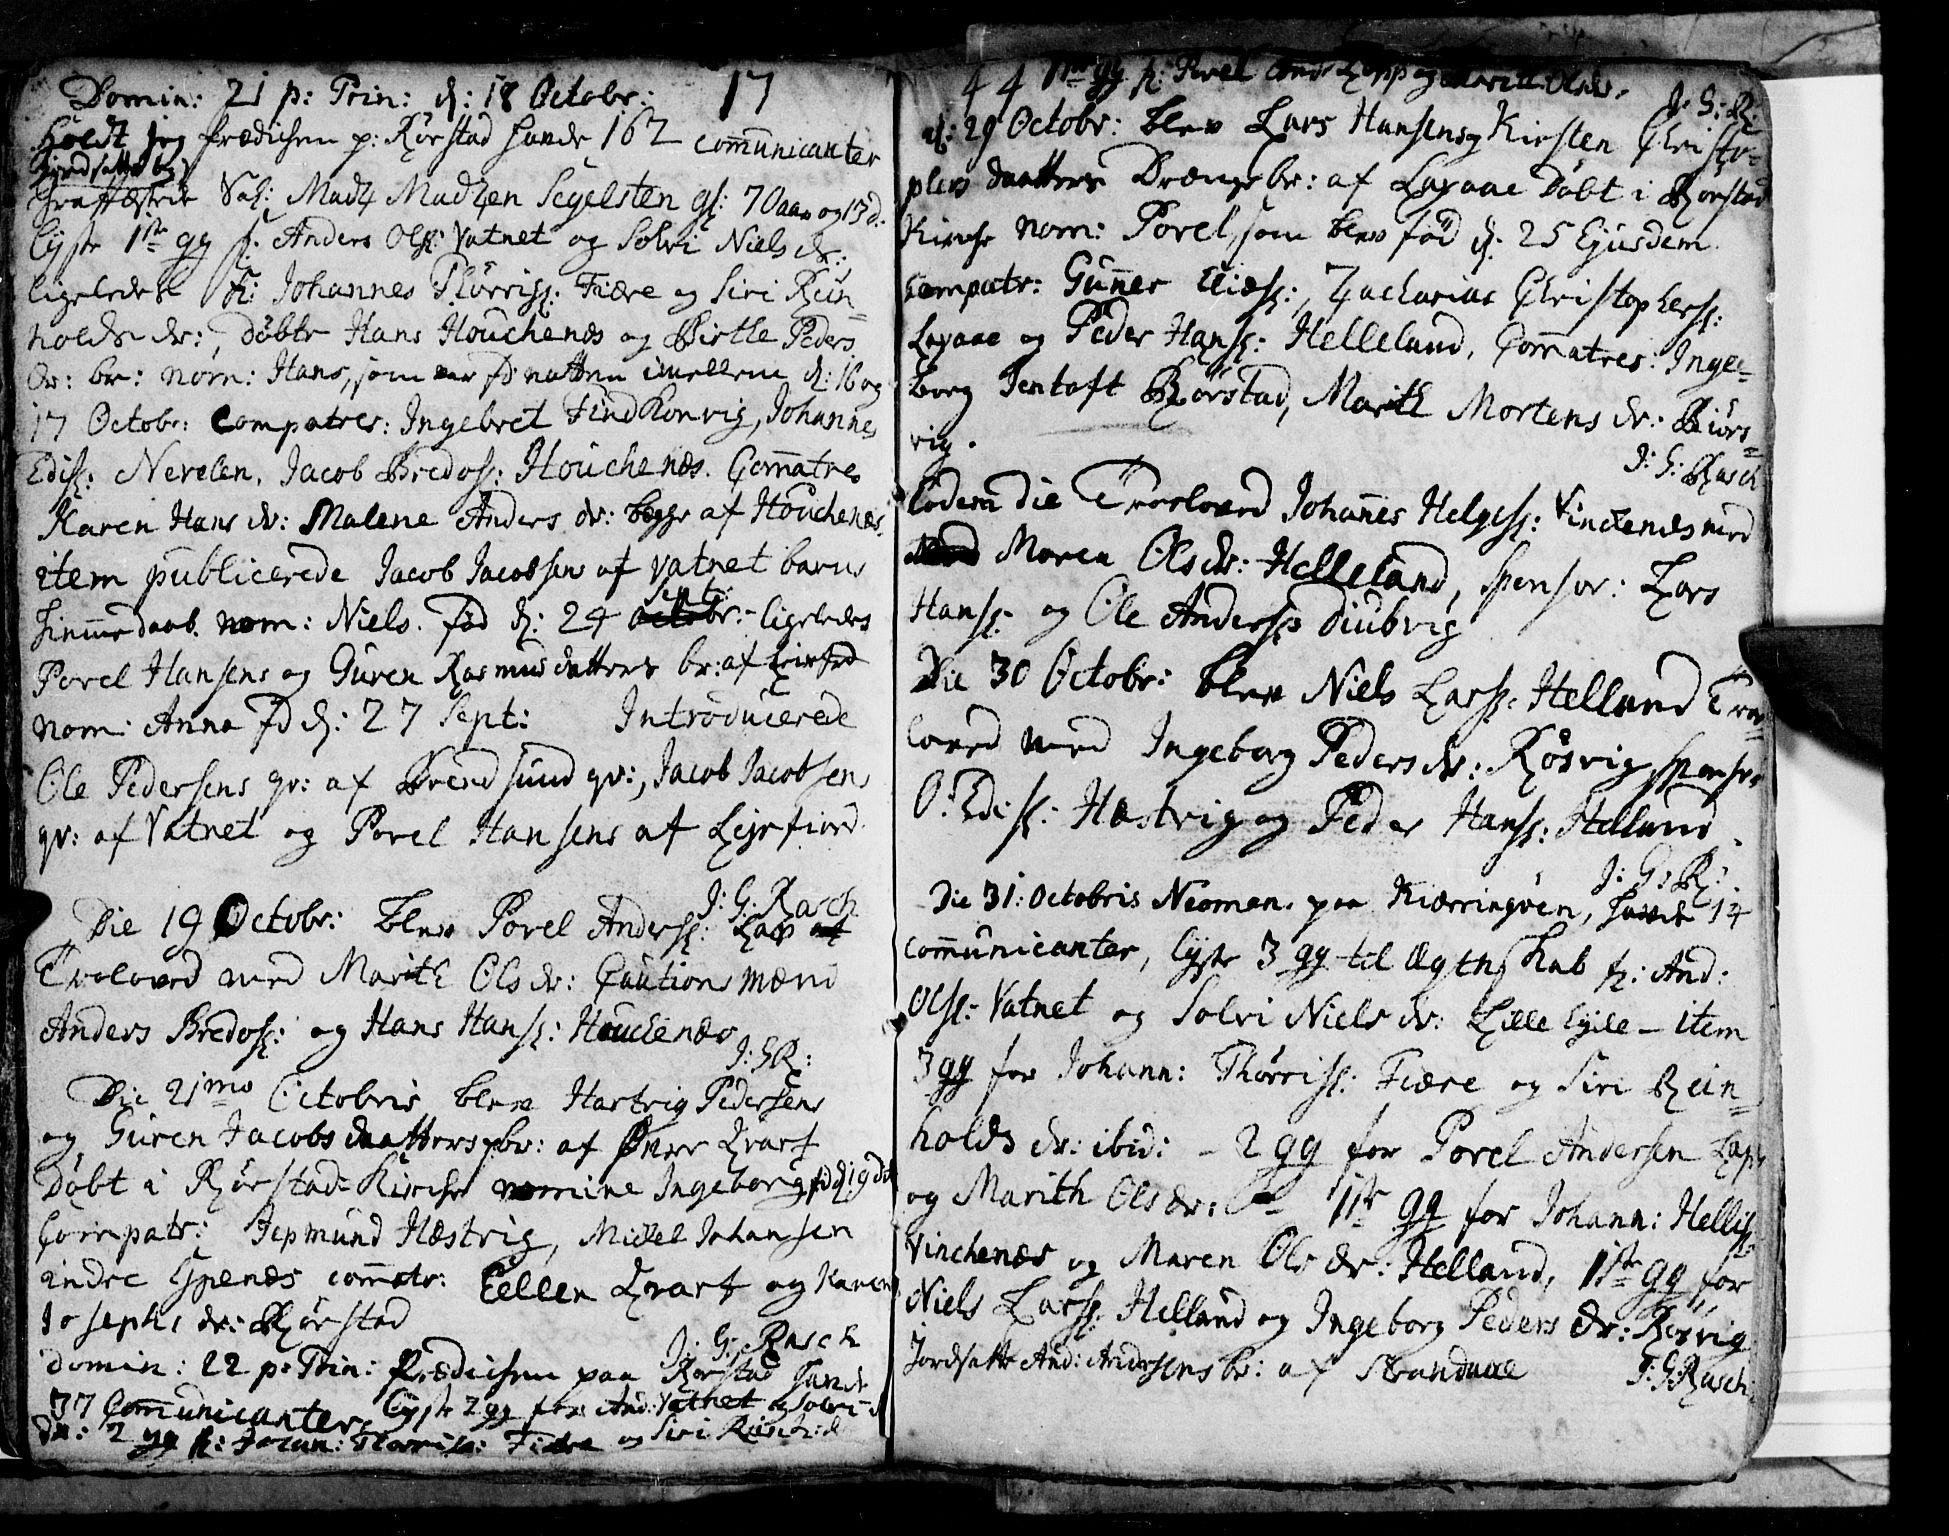 Domin: 21 p: Trin: d: 18 Octobr: 17
holdt jeg prædichen p: Rørstad hande 162 communicanter
Jordsatte og
Graffæstede Sal: Madz Madzen Segelsten gl: 70 aar og 13 d.
lyste 1ste gg f: Anders Olss: Vatnet og Solvi Niels dr:
ligeledes f: Johannes Thørriss: Fiære og Siri Rein=
holds dr:, døbte Hans Houchenæs og Birtte Peders
dr: br: nom: Hans, som var fd natten imellem d: 16 og
17 Octobr: Compatres: Ingebret Findkonvig, Johannes
Ediss: Nevelen, Jacob Bredoss: Houchenæs. Comatres
Karen Hans dr: Malene Anders dr: begge af Houchenæs,
item publicerede Jacob Jacobsens af Vatnet barns
Sept:
hiemedaab. nom: Niels. fød d: 24 octobr: - ligeledes
Povel Hansens og Guren Rasmusdatters br: af Leirfiord
nom: Anna fd d: 27 Sept: Introducerede
Ole Pedersens qv: af Brendsund qv:, Jacob Jacobsens
qv: af Vatnet og Povel Hansens af Leyrfiord.
J: G: Rasch
Die 19 Octobr: blev Povel Anderss: Lap
Troloved med Marith Ols dr: Cautions Mænd
Anders Bredoss: og Hans Hanss: Houchenæs
J: G R:
Die 21mo Octobris blev Hartvig Pedersens
og Guren Jacobs daatters br: af Qvarf
Døbt i Rørstad Kirche nomine Ingeborg fd d 19 d:
Compatr: Jepmund Hæstvig, Mickel Johansen
indre Gyenæs comatr: Eellen Qvarf og Karen
Josephs dr: Rørstad
J: G: Rasch
Domin: 22 p: Trin: Prædichen paa Rørstad hande
37 Communicanter, lyste 2 gg for And: Vatnet og Solvi N
dr: 2 gg f: Johan: Thørriss: Fiære og Siri
44 1ste gg f: Povel Lapp og Marith Olsdr.
J: G: R:
d: 29 Octobr: blev Lars Hansens og Kirsten Christo=
phers daatters Drængebr: af Laxaae Døbt i Rørstad
Kirche nom: Povel, som blev fød d: 25 Ejusdem.
Compatr: Guner Eliæss:, Zacharias Christopherss:
Laxaae og Peder Hanss: Helleland, Comatres: Inge=
borg Jentoft Rørstad, Marith Mortens dr: Biørs=
vig.
J: G: Rasch
Eodem die Troeloved Johanes Helgess: Vinckenæs med
Maren Ols dr: Helleland, Sponsor: Lars
Hanss: og Ole Anderss Diubvig
Die 30 Octobr: blev Niels Larss: Helland Troe=
loved med Ingeborg Peders dr: Røsvig, Sponsor
O: Ediss: Hæstvig og Peder Hanss: Helland.
J: G: R:
Die 31: Octobris Neomen. paa Kierringøen, havde 14
communicanter, lyste 3 gg til Ægteskab f: And:
Olss: Vatnet og Solvi Niels dr: Lille Eyde - item
3 gg for Johann: Thørriss: Fiære og Siri Rein=
holds dr: ibid: - 2 gg for Povel Andersen Lap
og Marith Ols dr: 1ste gg for Johann: Helliss:
Vinchenæs og Maren Ols dr: Helland, 1ste gg for
Niels Larss: Helland og Ingeborg Peders dr: Røsvig
Jordsatte And: Andersens br: af Strandaae
J: G: Rasch